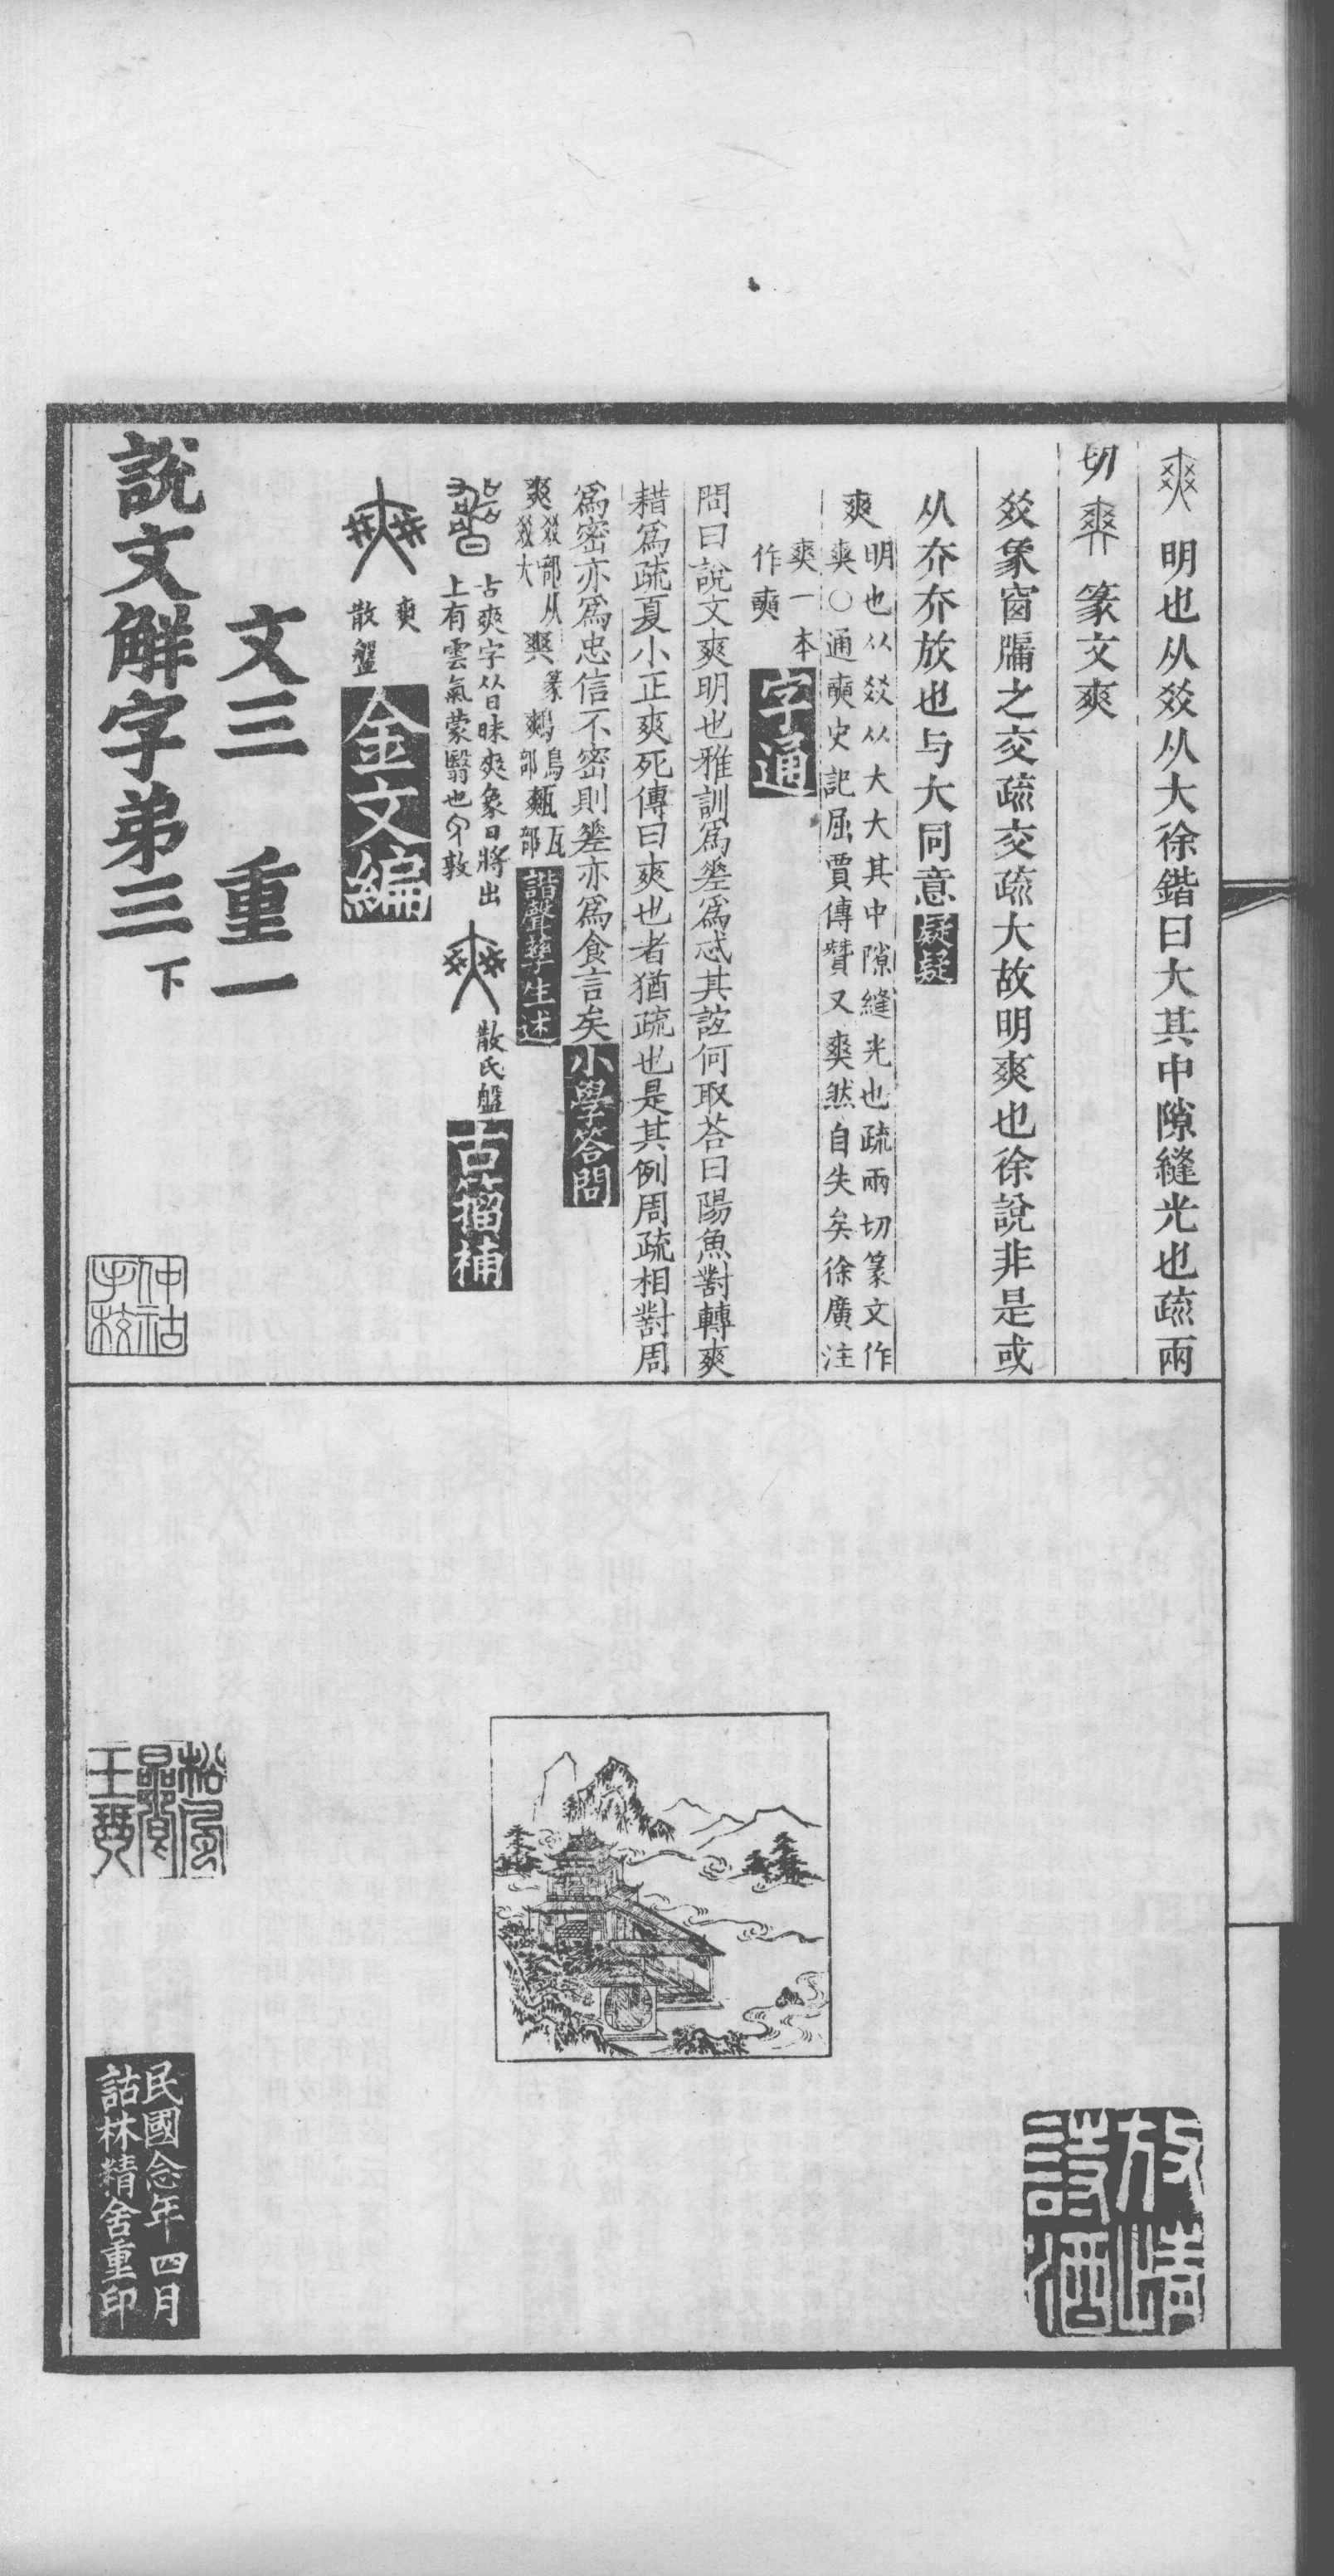 爽明也从㸚从大徐鍇曰大其中隙縫光也疏兩
切𤕤篆文爽
㸚象窗牖之交疏交疏大故明爽也徐說非是或
从夰夰放也与大同意疑疑
爽明也从㸚从大大其中隙縫光也疏兩切篆文作
爽○通奭史記屈賈傳贊又爽然自失矣徐廣注
爽一本
作奭字通
問曰說文爽明也雅訓爲差爲忒其誼何取荅曰陽魚對轉爽
耤爲疏夏小正爽死傳曰爽也者猶疏也是其例周疏相對周
爲密亦爲忠信不密則差亦爲食言矣小學答問
爽㸚部从㸚大
篆鷞鳥部甀瓦部諧聲孳生述
古爽字从日昧爽象日將出
上有雲氣蒙翳也
散氏盤古籀補
爽
散盤金文編
文三 重一
說文解字弟三下
仲祜
手校
松風
品賞
王贊
放情
詩酒
民國念年四月
詁林精舍重印